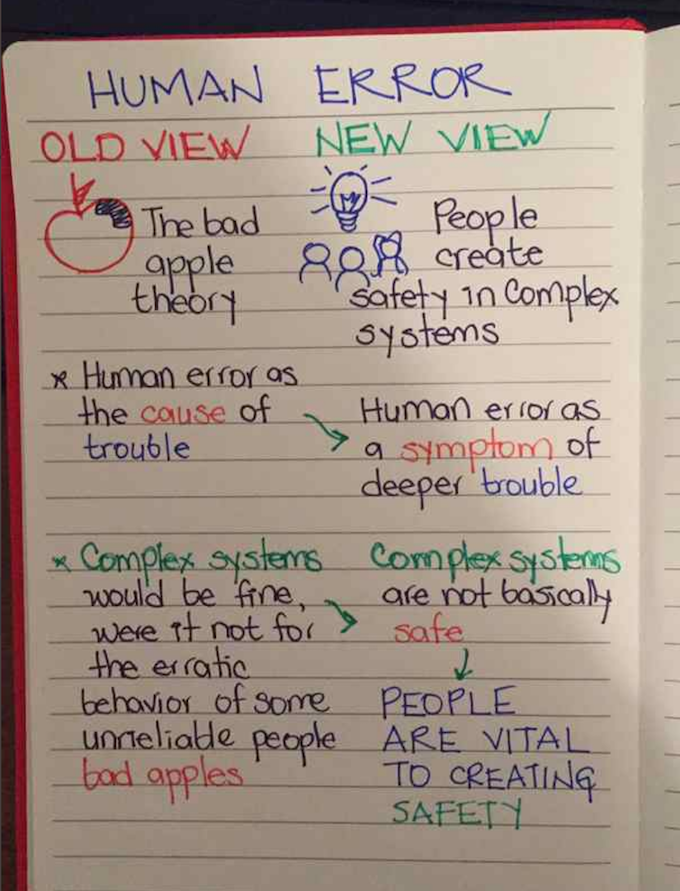 HUMAN ERROR
OLD VIEW
The bad
apple
theory
* Human error as
the cause of
trouble
* Complex systems
would be fine,
were it not for
the erratic
behavior of some
unreliable people
bad apples
NEW VIEW
People
create
safety in complex
systems
Human error as
a symptom of
deeper trouble
Complex systems
are not basically
safe
PEOPLE
ARE VITAL
TO CREATING
SAFETY